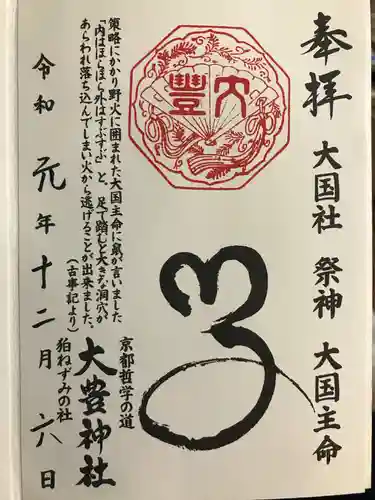 奉拝
大国社 祭神 大国主命
大豊
京都哲学の道
大豊神社
狛ねずみの社
策略にかかり野火に囲まれた大国主命に鼠が言いました
「内はほらほら外はすぶすぶ」と、足で踏むと大きな洞穴が
あらわれ落ち込んでしまい火から逃げることが出来ました。
(古事記より)
令和元年十二月六日